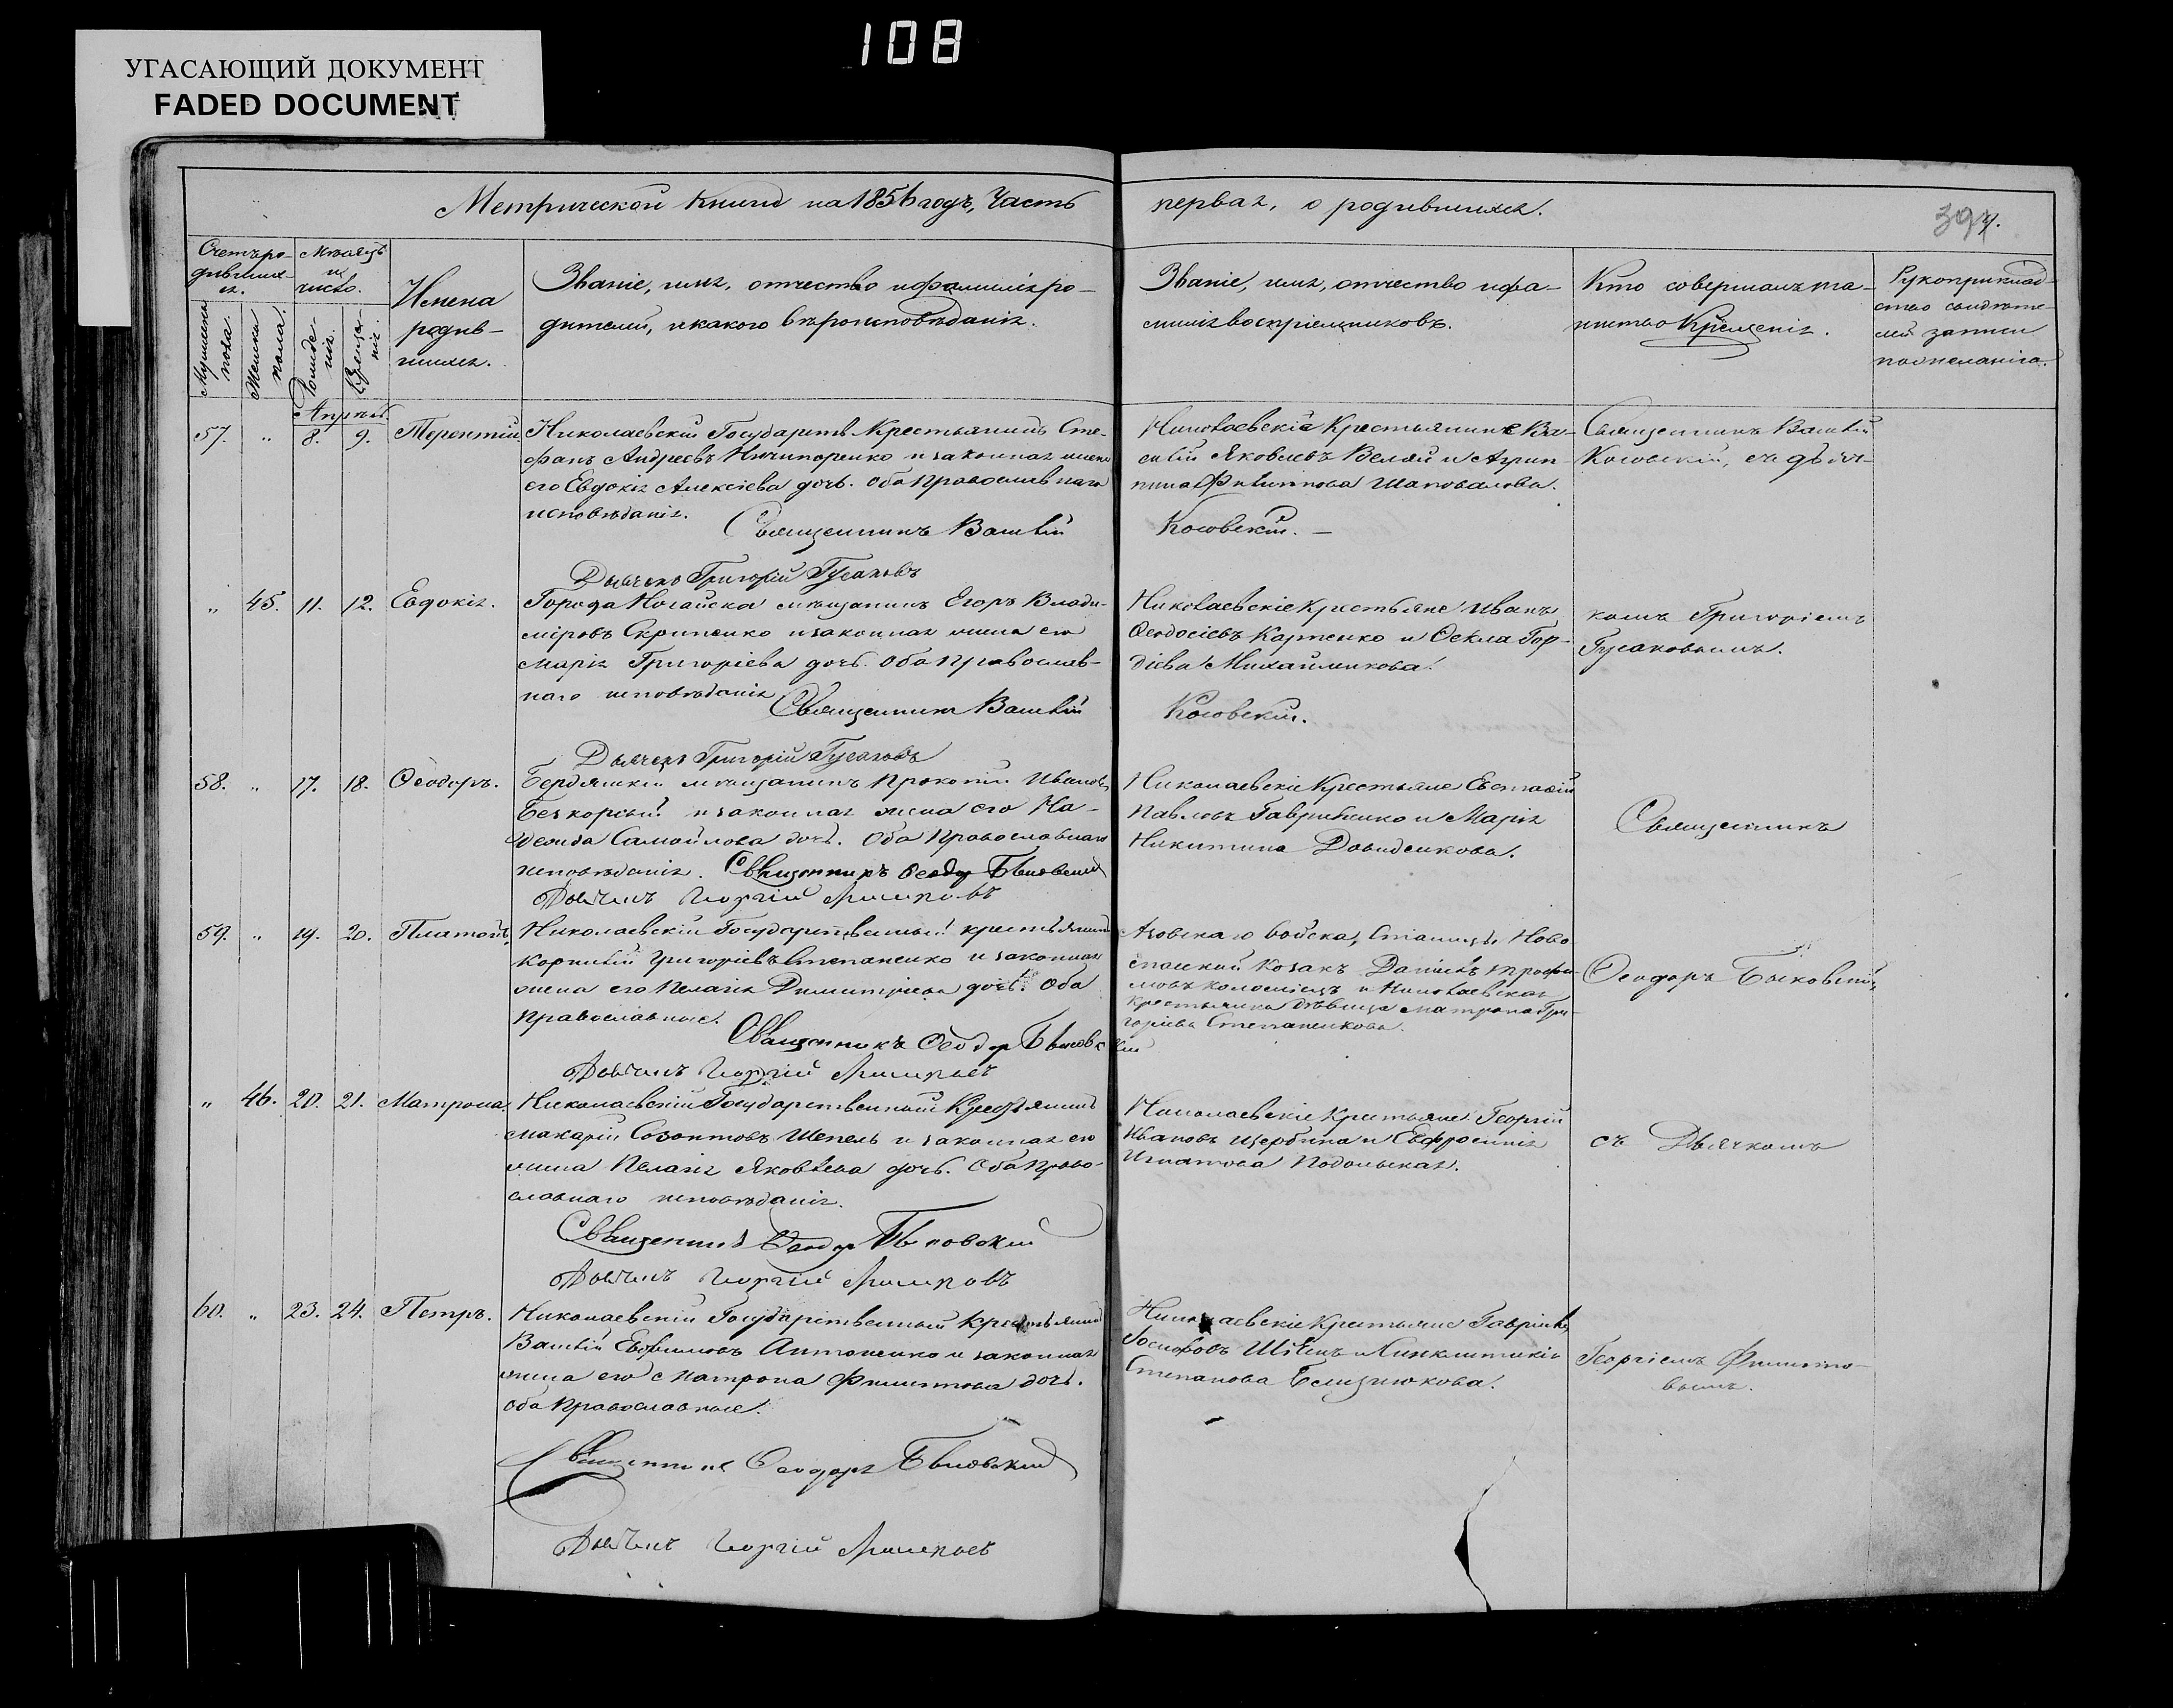 108
УГАСАЮЩИЙ ДОКУМЕНТ
FADED DOCUMENT
Метрической книги на 1856 годъ, Часть первая, о родившихся.
394.
Счетъ ро-
дивших-
ся.
Мѣсяцъ
и
число.
Мужеска
пола.
Женска
пола.
Рожде-
нія.
Креще-
нія.
Имена
родив-
шихся.
Званіе, имя, отчество и фамилія ро-
дителей, и какого вѣроисповѣданія.
Званіе, имя, отчество и фа-
милія воспріемниковъ.
Кто совершалъ та-
инство Крещенія.
Рукоприклад-
ство свидѣте-
лей записи
по желанію.
Апрѣль
57. " 8. 9. Терентій
Николаевскій Государств. Крестьянинъ Сте-
фанъ Андреевъ Ничипоренко и законная жена
его Евдокія Алексіева дочь. Оба Православнаго
исповѣданія.
Священникъ Василій Косовскій.
Дьячекъ Григорій Гусаковъ
Николаевскіе Крестьянине Ва-
силій Яковлевъ Велій и Агрип-
пина Филиппова Шаповалова.
Священникъ Василій
Косовскій, съ дьяч-
" 45. 11. 12. Евдокія.
Города Ногайска мѣщанинъ Егоръ Влади-
міровъ Скрипенко и законная жена его
Марія Григоріева дочь. Оба Православ-
наго исповѣданія
Священникъ Василій Косовскій.
Дьячекъ Григорій Гусаковъ
Николаевскіе Крестьяне Иванъ
Ѳеодосіевъ Карпенко и Ѳекла Гор-
діева Михайликова.
комъ Григоріемъ
Гусаковымъ.
58. " 17. 18. Ѳеодоръ.
Бердянскій мѣщанинъ Прокопій Ивановъ
Безкорсый и законная жена его На-
дежда Самойлова дочь. Оба Православнаго
исповѣданія. Священникъ Ѳеодоръ Быковскій
Дьячекъ Георгій Филиповъ
Николаевскіе Крестьяне Евстафій
Павловъ Гавриленко и Марія
Никитина Давиденкова.
Священникъ
59. " 19. 20. Платонъ,
Николаевскій Государственный крестьянинъ
Корнилій Григорьевъ Степаненко и законная
жена его Пелагія Димитріева дочь. Оба
Православные.
Священникъ Ѳеодоръ Быковскій
Дьячекъ Георгій
Азовскаго войска, Станицы Ново-
спаской Козакъ Даніилъ Трофи-
мовъ Коломіецъ и Николаевская
крестьянка дѣвица Матрона Гри-
горіева Степаненкова.
Ѳеодоръ Быковскій,
" 46. 20. 21. Матрона.
Николаевскій Государственный Крестьянинъ
Макарій Созонтовъ Шепель и законная его
жена Пелагія Яковлева дочь. Оба Право-
славнаго исповѣданія.
Священникъ Ѳеодоръ Быковскій
Дьячекъ Георгій
Николаевскіе Крестьяне Георгій
Ивановъ Щербина и Евфросинія
Игнатова Подольская.
съ Дьячкомъ
60. " 23. 24. Петръ.
Николаевскій Государственный Крестьянинъ
Василій Евфимовъ Антоненко и законная
жена его Матрона Филиппова дочь.
Оба Православные.
Священникъ Ѳеодоръ Быковскій
Дьячекъ Георгій
Николаевскіе Крестьяне Гавріилъ
Іосифовъ и Синклитикія
Степанова
Георгіемъ Филиппо-
вымъ.